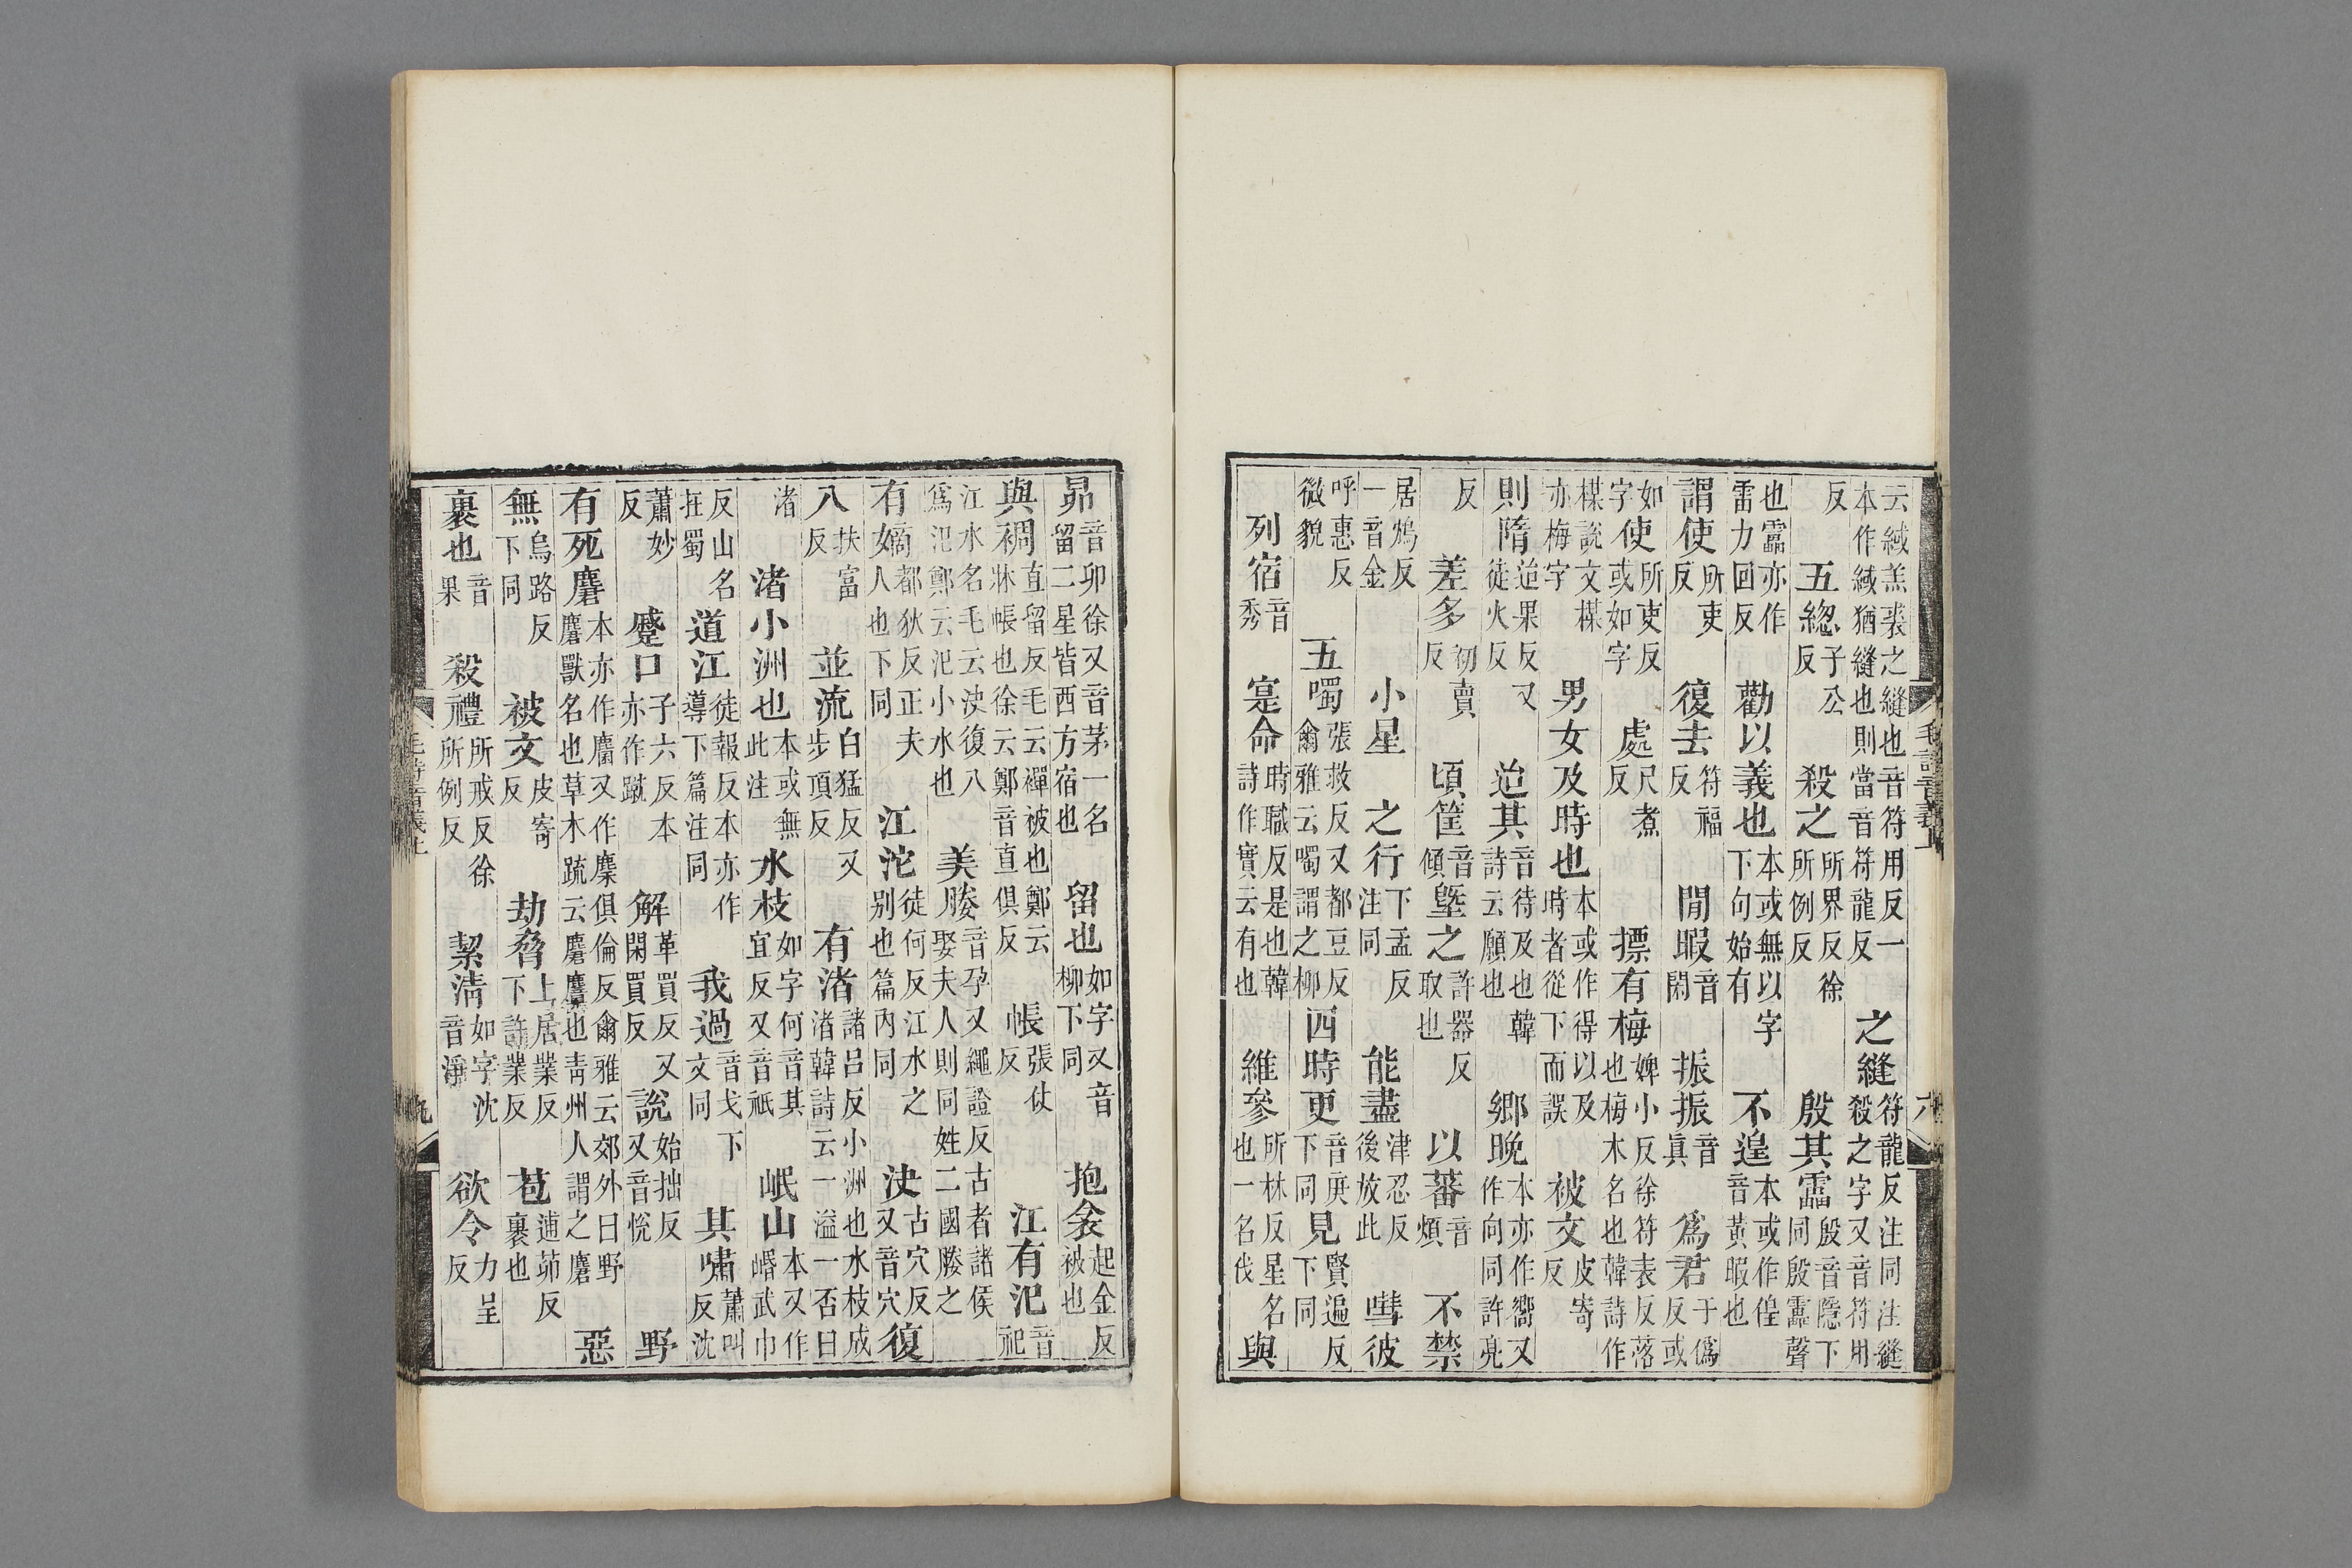 云緎羔裘之縫也音符用反一本作緎猶縫也則當音符龍反 之縫符龍反注同注縫殺之字又音符用
反 五緫子公反 殺之所界反徐所例反 殷其靁殷音隱下同殷靁聲
也靁亦作雷力回反 勸以義也本或無以字下句始有 不遑本或作偟音黃暇也
謂使所吏反 復去符福反 閒暇音閑 振振音眞 爲君于僞反或
如字使所吏反或如字 處尺煮反 摽有梅婢小反徐符表反落也梅木名也韓詩作
楳說文楳亦梅字 男女及時也本或作得以及時者從下而誤 被文皮寄反
則隋迨果反又徒火反 迨其音待及也韓詩云願也 鄉晚本亦作嚮又作向同許亮
反 差多初賣反 頃筐音傾 塈之許器反取也 以蕃音煩 不禁
居鴆反一音金 小星 之行下孟反注同 能盡津忍反後放此 嘒彼
呼惠反微貌 五噣張救反又都豆反爾雅云噣謂之柳 四時更音庚下同 見賢遍反下同
列宿音秀 寔命時職反是也韓詩作實云有也 維參所林反星名也一名伐 與
毛詩音義上
昴音卯徐又音茅一名留二星皆西方宿也 留也如字又音柳下同 抱衾起金反被也
與裯直留反毛云襌被也鄭云牀帳也徐云鄭音直俱反 帳張仗反 江有汜音祀
江水名毛云決復入爲汜鄭云汜小水也 美媵音孕又繩證反古者諸侯娶夫人則同姓二國媵之
有嫡都狄反正夫人也下同 江沱徒何反江水之別也篇內同 決古穴反又音穴 復
入扶富反 並流白猛反又步頂反 有渚諸呂反小洲也水枝成渚韓詩云一溢一否曰
渚 渚小洲也本或無此注 水枝如字何音其宜反又音祇 岷山本又作㟭武巾
反山名在蜀 道江徒報反本亦作導下篇注同 我過音戈下文同 其嘯蕭叫反沈
蕭妙反 蹙口子六反本亦作蹴 解革買反又閑買反 說始拙反又音悅 野
有死麕本亦作麏又作麇俱倫反麕獸名也草木疏云麕麞也青州人謂之麕 爾雅云郊外曰野 惡
無烏路反下同 被文皮寄反 劫脅上居業反下許業反 苞逋茆反裹也
裹也音果 殺禮所戒反徐所例反 絜清如字沈音淨 欲令力呈反